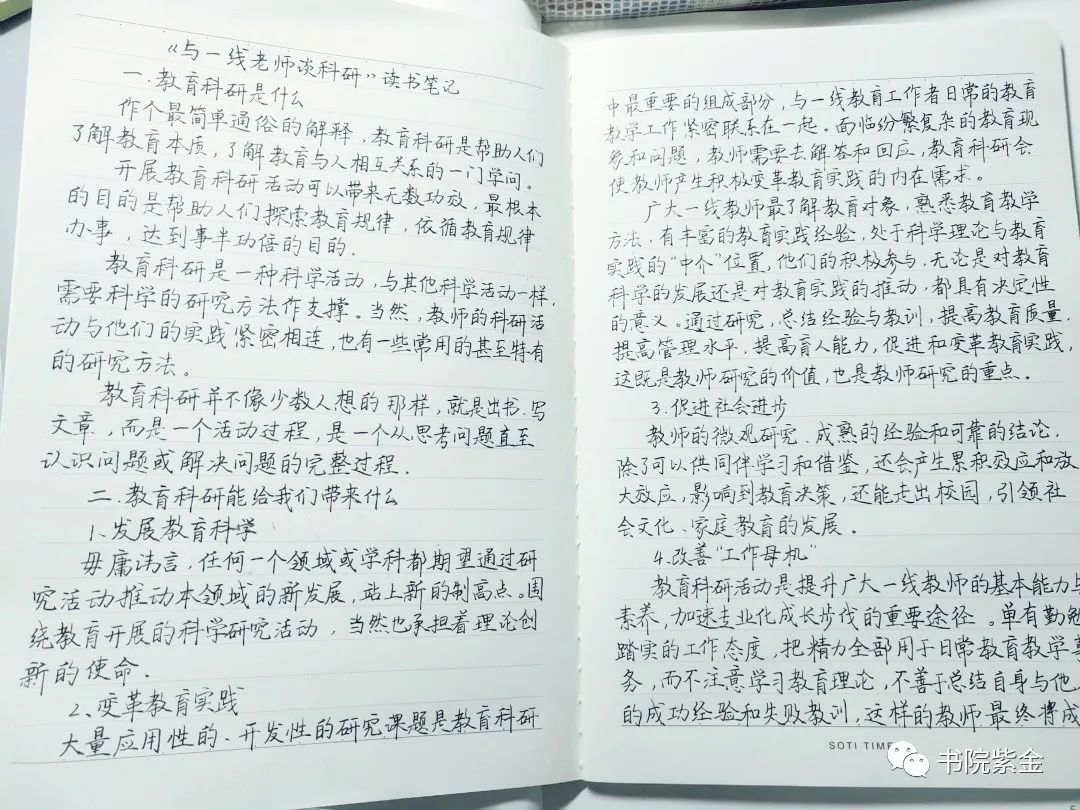 “与一线老师谈科研”读书笔记
一.教育科研是什么
作个最简单通俗的解释，教育科研是帮助人们
了解教育本质，了解教育与人相互关系的一门学问。
开展教育科研活动可以带来无数功效，最根本
的目的是帮助人们探索教育规律，依循教育规律
办事，达到事半功倍的目的.
教育科研是一种科学活动，与其他科学活动一样，
需要科学的研究方法作支撑。当然，教师的科研活
动与他们的实践紧密相连，也有一些常用的甚至特有
的研究方法。
教育科研并不像少数人想的那样，就是出书.写
文章，而是一个活动过程，是一个从思考问题直至
认识问题或解决问题的完整过程.
二.教育科研能给我们带来什么
1、发展教育科学
毋庸讳言，任何一个领域或学科都期望通过研
究活动推动本领域的新发展，站上新的制高点。围
绕教育开展的科学研究活动，当然也承担着理论创
新的使命.
2、变革教育实践
大量应用性的、开发性的研究课题是教育科研
中最重要的组成部分，与一线教育工作者日常的教育
教学工作紧密联系在一起。面临纷繁复杂的教育现
象和问题，教师需要去解答和回应，教育科研会
使教师产生积极变革教育实践的内在需求。
广大一线教师最了解教育对象，熟悉教育教学
方法，有丰富的教育实践经验，处于科学理论与教育
实践的“中介”位置，他们的积极参与，无论是对教育
科学的发展还是对教育实践的推动，都具有决定性
的意义。通过研究，总结经验与教训，提高教育质量，
提高管理水平，提高育人能力，促进和变革教育实践，
这既是教师研究的价值，也是教师研究的重点。
3.促进社会进步
教师的微观研究、成熟的经验和可靠的结论，
除了可以供同伴学习和借鉴，还会产生累积效应和放
大效应，影响到教育决策，还能走出校园，引领社
会文化、家庭教育的发展。
4.改善“工作母机”
教育科研活动是提升广大一线教师的基本能力与
素养，加速专业化成长步伐的重要途径。单有勤勉
踏实的工作态度，把精力全部用于日常教育教学事
务，而不注意学习教育理论，不善于总结自身与他人
的成功经验和失败教训，这样的教师最终将成
SOTI TIME
书院紫金